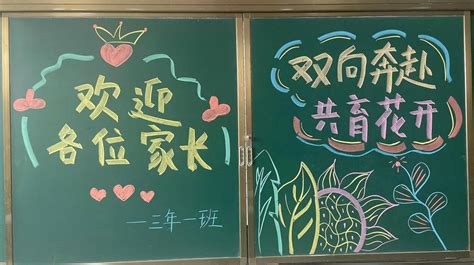 欢迎
各位家长
一三年一班
双向奔赴
共育花开